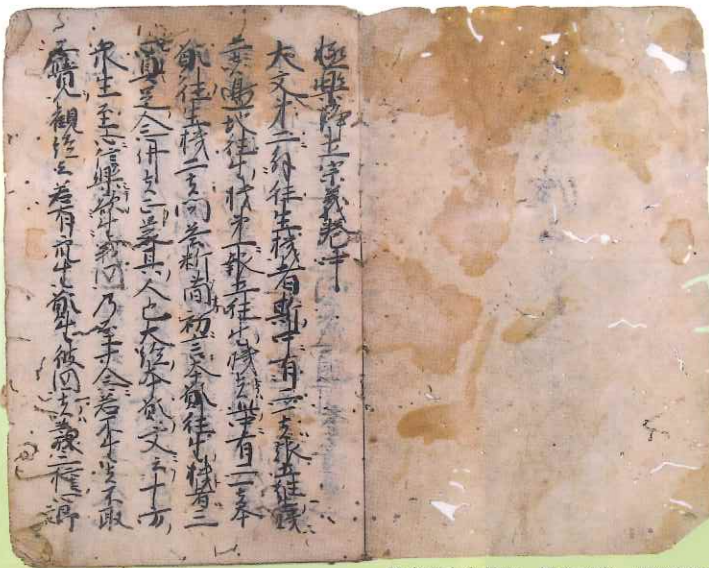 極樂浄土宗義卷中
大文第二弁往生機者就中有二一者報土往生機
二者邊地往生機第一報土往生機者此有二一者本
願往生機二者問答断簡初言本願往生機者三
心具足念仏者正是其人也大經本願文云十方
衆生至心信樂欲生我國乃至十念若不生者不取
正覺又觀經云若有衆生願生彼國者發三種心即